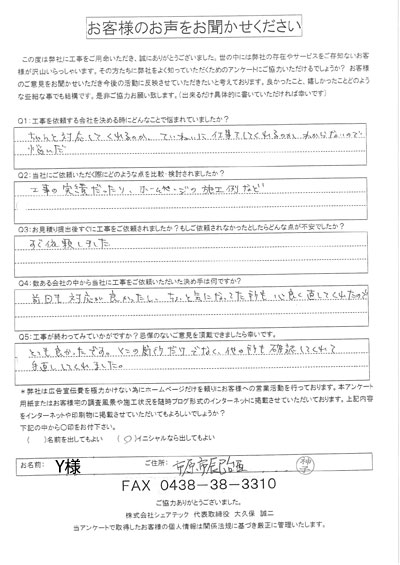 お客様のお声をお聞かせください
この度は弊社に工事をご用命いただき、誠にありがとうございました。世の中には弊社の存在やサービスをご存知ないお客
様が沢山いらっしゃいます。その方たちに弊社をよく知っていただくためのアンケートにご協力いただけるでしょうか？ お客様
のご意見をお聞かせいただき今後の活動に反映させていただきたいと考えております。良かったこと、嬉しかったことどのよう
な些細な事でも結構です。是非ご協力お願い致します。（出来るだけ具体的に書いていただければ幸いです）
Q1：工事を依頼する会社を決める時にどんなことで悩まれていましたか？
ちゃんと対応してくれるのか、ていねいに仕事してくれるのか、わからないので
悩んだ
Q2：当社にご依頼いただく際にどのような点を比較・検討されましたか？
工事の実績だったり、ホームページの施工例など
Q3：お見積り提出後すぐに工事をご依頼されましたか？もしご依頼されなかったとしたらどんな点が不安でしたか？
すぐ依頼しました
Q4：数ある会社の中から当社に工事をご依頼いただいた決め手は何ですか？
前回も対応が良かったし、ちょっと気になってた所も心良く直してくれたの
Q5：工事が終わってみていかがですか？忌憚のないご意見を頂戴できましたら幸いです。
とても良かったです。その箇所だけでなく、他の所も確認してくれて
手直ししてくれました。
＊弊社は広告宣伝費を極力かけない為にホームページだけを頼りにお客様への営業活動を行っております。本アンケート
用紙またはお客様宅の調査風景や施工状況を随時ブログ形式のインターネットに掲載させていただいております。上記内容
をインターネットや印刷物に掲載させていただいてもよろしいでしょうか？
下記の中から○印をお付下さい。
（　）名前を出してもよい　（○）イニシャルなら出してもよい
お名前： Y様　ご住所： 市原市辰巳台
FAX 0438-38-3310
ご協力ありがとうございました。
株式会社シェアテック 代表取締役 大久保 誠二
当アンケートで取得したお客様の個人情報は関係法規に基づき厳正に管理いたします。